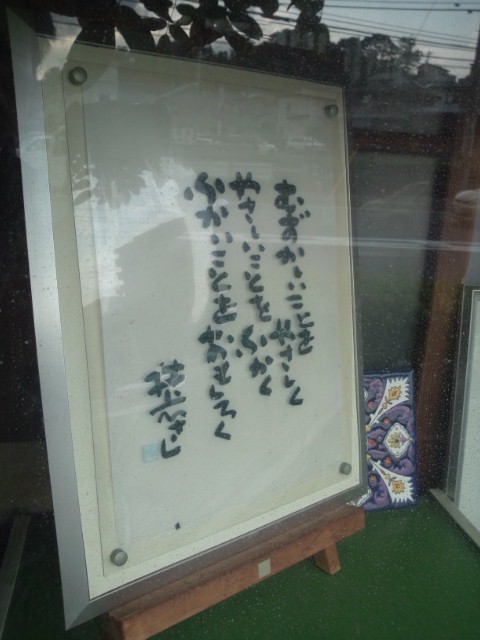 むずかしいことを やさしく
やさしいことを ふかく
ふかいことを おもしろく
井上ひさし